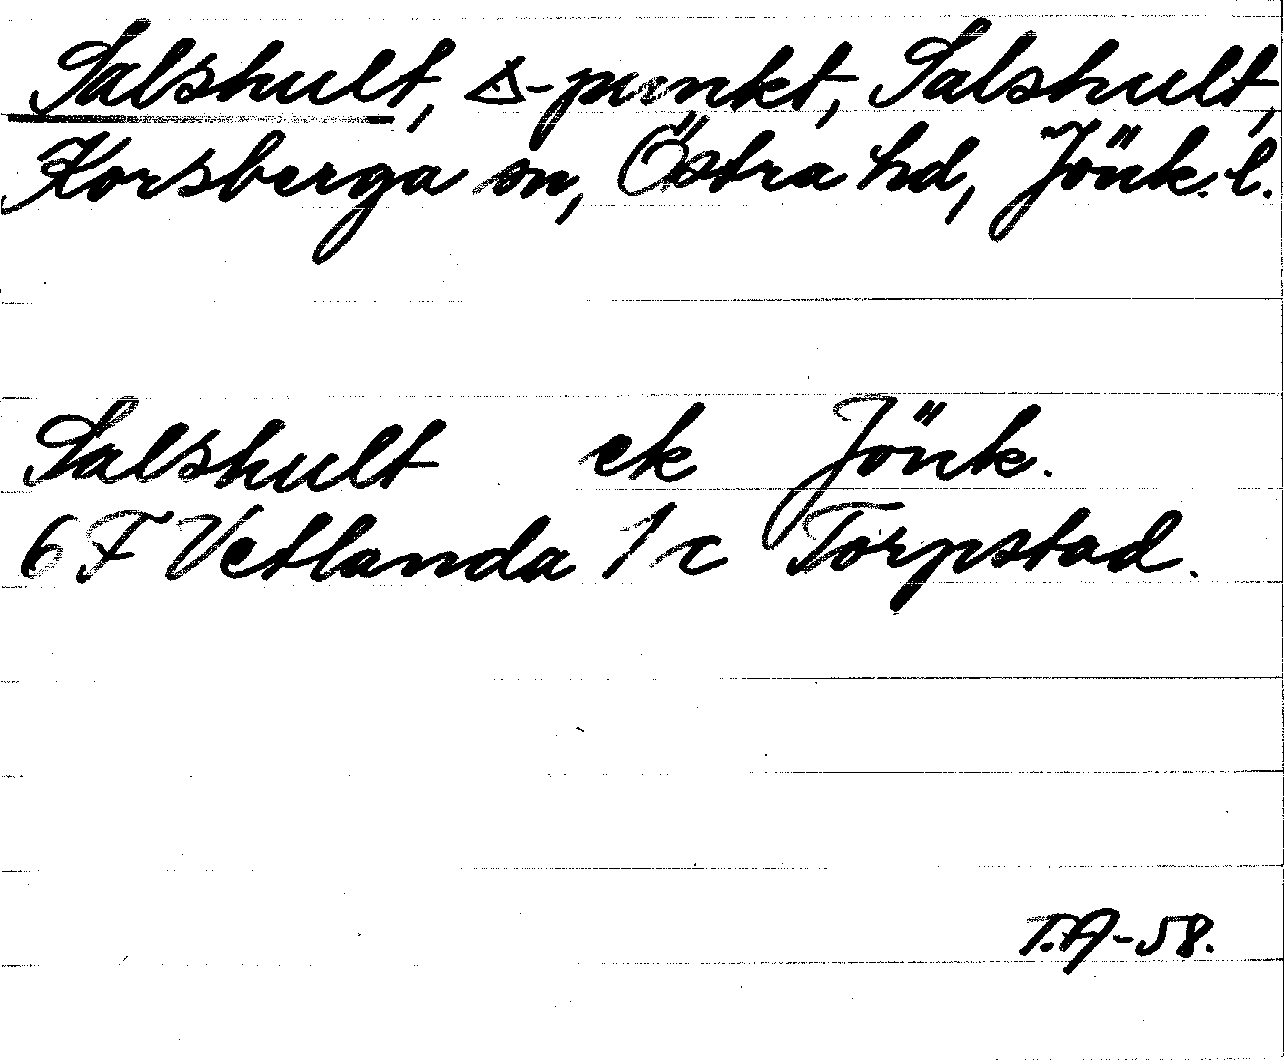 Salshult, △-punkt, Salshult,
Korsberga sn, Östra hd, Jönk. l.
Salshult ek Jönk.
6 F Vetlanda 1 c Torpstad.
T.A-58.